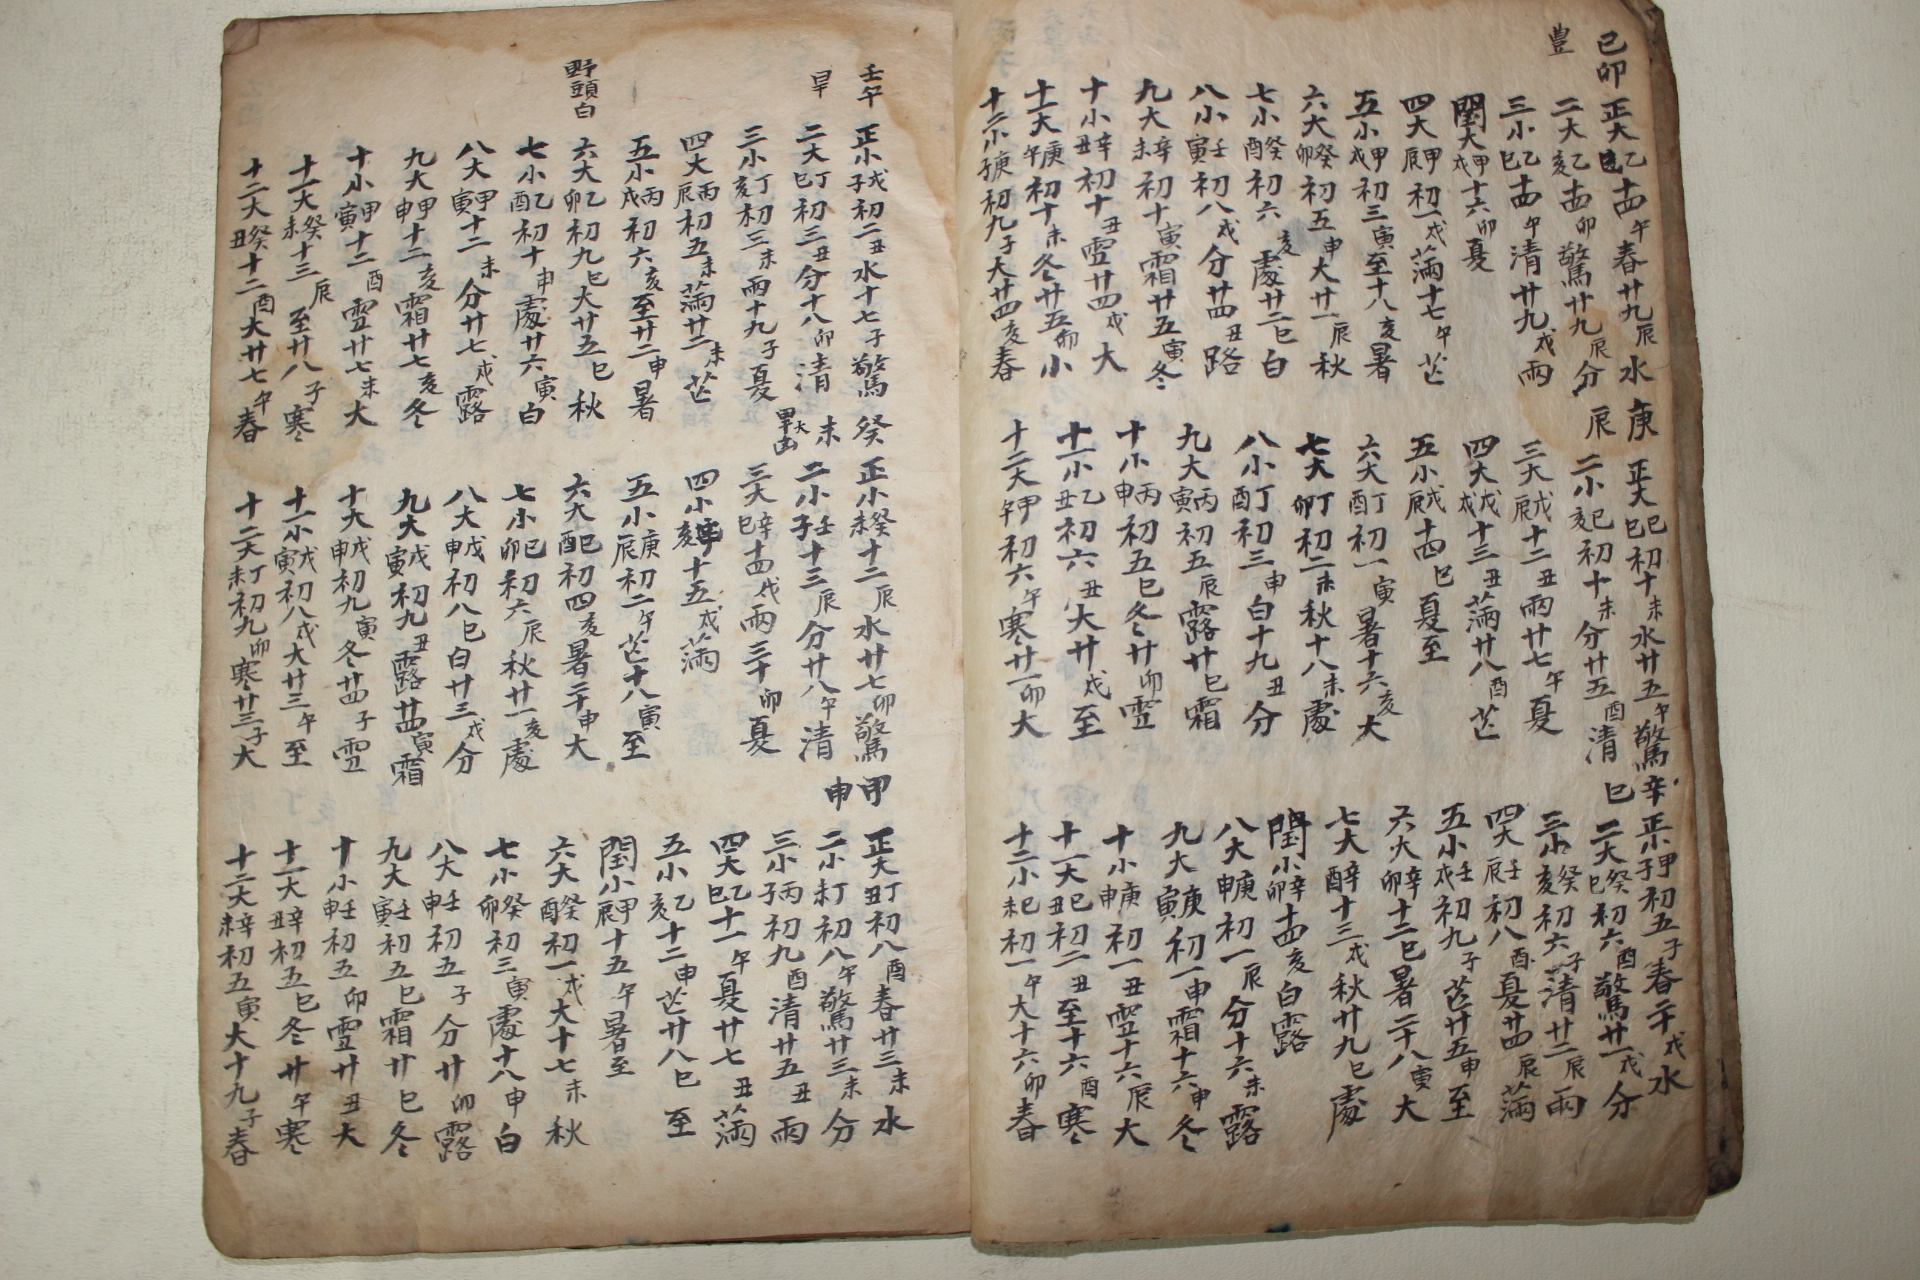 己卯
豊
正大乙巳十四午春廿九辰水
二大乙亥十四卯驚廿九辰分
三小乙巳十四午清廿九戌雨
閏大甲戌十六卯夏
四大甲辰初一戌滿十七午芒
五小甲戌初三寅至十八亥暑
六大癸卯初五申大廿一辰秋
七小癸酉初六亥處廿二巳白
八小壬寅初八戌分廿四丑路
九大辛未初十寅霜廿五寅冬
十小辛丑初十丑雪廿四戌大
十一大庚午初十未冬廿五卯小
十二小庚子初九子大廿四亥春
庚辰
正大己巳初十未水廿五午驚
二小己亥初十未分廿五酉清
三大戊辰十二丑雨廿七午夏
四大戊戌十三丑滿廿八酉芒
五小戊辰十四巳夏至
六大丁酉初一寅暑十六亥大
七大丁卯初二未秋十八未處
八小丁酉初三申白十九丑分
九大丙寅初五辰露廿巳霜
十小丙申初五巳冬廿卯雪
十一小乙丑初六丑大廿戌至
十二大甲午初六午寒廿一卯大
辛巳
正小甲子初五子春二十戌水
二大癸巳初六酉驚廿一戌分
三小癸亥初六子清廿二辰雨
四大壬辰初八酉夏廿四辰滿
五小壬戌初九子芒廿五申至
六大辛卯十二巳暑二十八寅大
七大辛酉十三戌秋廿九巳處
閏小辛卯十四亥白露
八大庚申初一辰分十六未露
九大庚寅初一申霜十六申冬
十小庚申初一丑雪十六辰大
十一大己丑初二丑至十六酉寒
十二小己未初一午大十六卯春
壬午
旱
野頭白
正小戊子初二丑水十七子驚
二大丁巳初三丑分十八卯清
三小丁亥初三未雨十九子夏
四大丙辰初五未滿廿二未芒
五小丙戌初六亥至廿二申暑
六大乙卯初九巳大廿五巳秋
七小乙酉初十申處廿六寅白
八大甲寅十二未分廿七戌露
九大甲申十二亥霜廿七亥冬
十小甲寅十二酉雪廿七未大
十一大癸未十三辰至廿八子寒
十二大癸丑十二酉大廿七午春
癸未
大旱凶
正小癸未十二辰水廿七卯驚
二小壬子十三辰分廿八午清
三大辛巳十四戌雨三十卯夏
四小辛亥十五戌滿
五小庚辰初二午芒十八寅至
六大己酉初四亥暑二十申大
七小己卯初六辰秋廿一亥處
八大戊申初八巳白廿三戌分
九大戊寅初九丑露廿四寅霜
十大戊申初九寅冬廿四子雪
十一小戊寅初八戌大廿三午至
十二大丁未初九卯寒廿三子大
甲申
正大丁丑初八酉春廿三未水
二小丁未初八午驚廿三未分
三小丙子初九酉清廿五丑雨
四大乙巳十一午夏廿七丑滿
五小乙亥十二申芒廿八巳至
閏小甲辰十五午暑至
六大癸酉初一戌大十七未秋
七小癸卯初三寅處十八申白
八大壬申初五子分廿卯露
九大壬寅初五巳霜廿巳冬
十小壬申初五卯雪廿丑大
十一大辛丑初五巳冬廿午寒
十二大辛未初五寅大十九子春